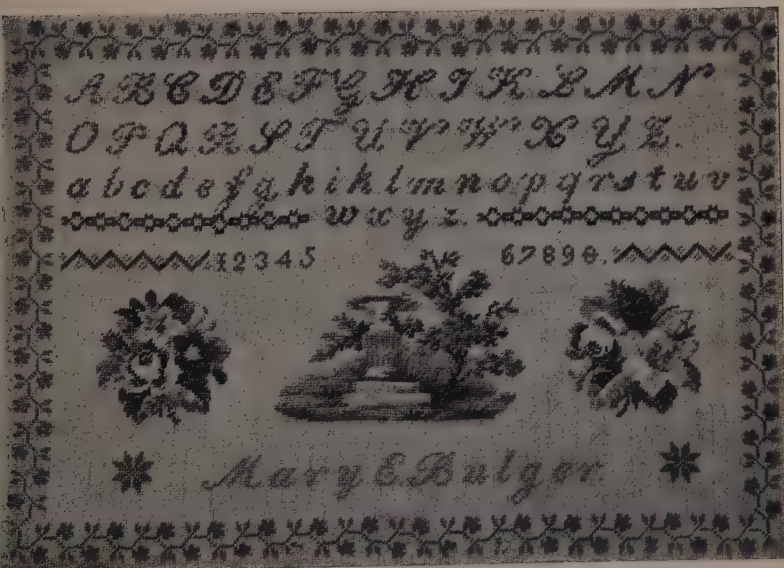 A B C D E F G H I K L M N
O P Q R S T U V W X Y Z.
a b c d e f g h i k l m n o p q r s t u v
w x y z.
1 2 3 4 5 6 7 8 9 0.
Mary E Bulger